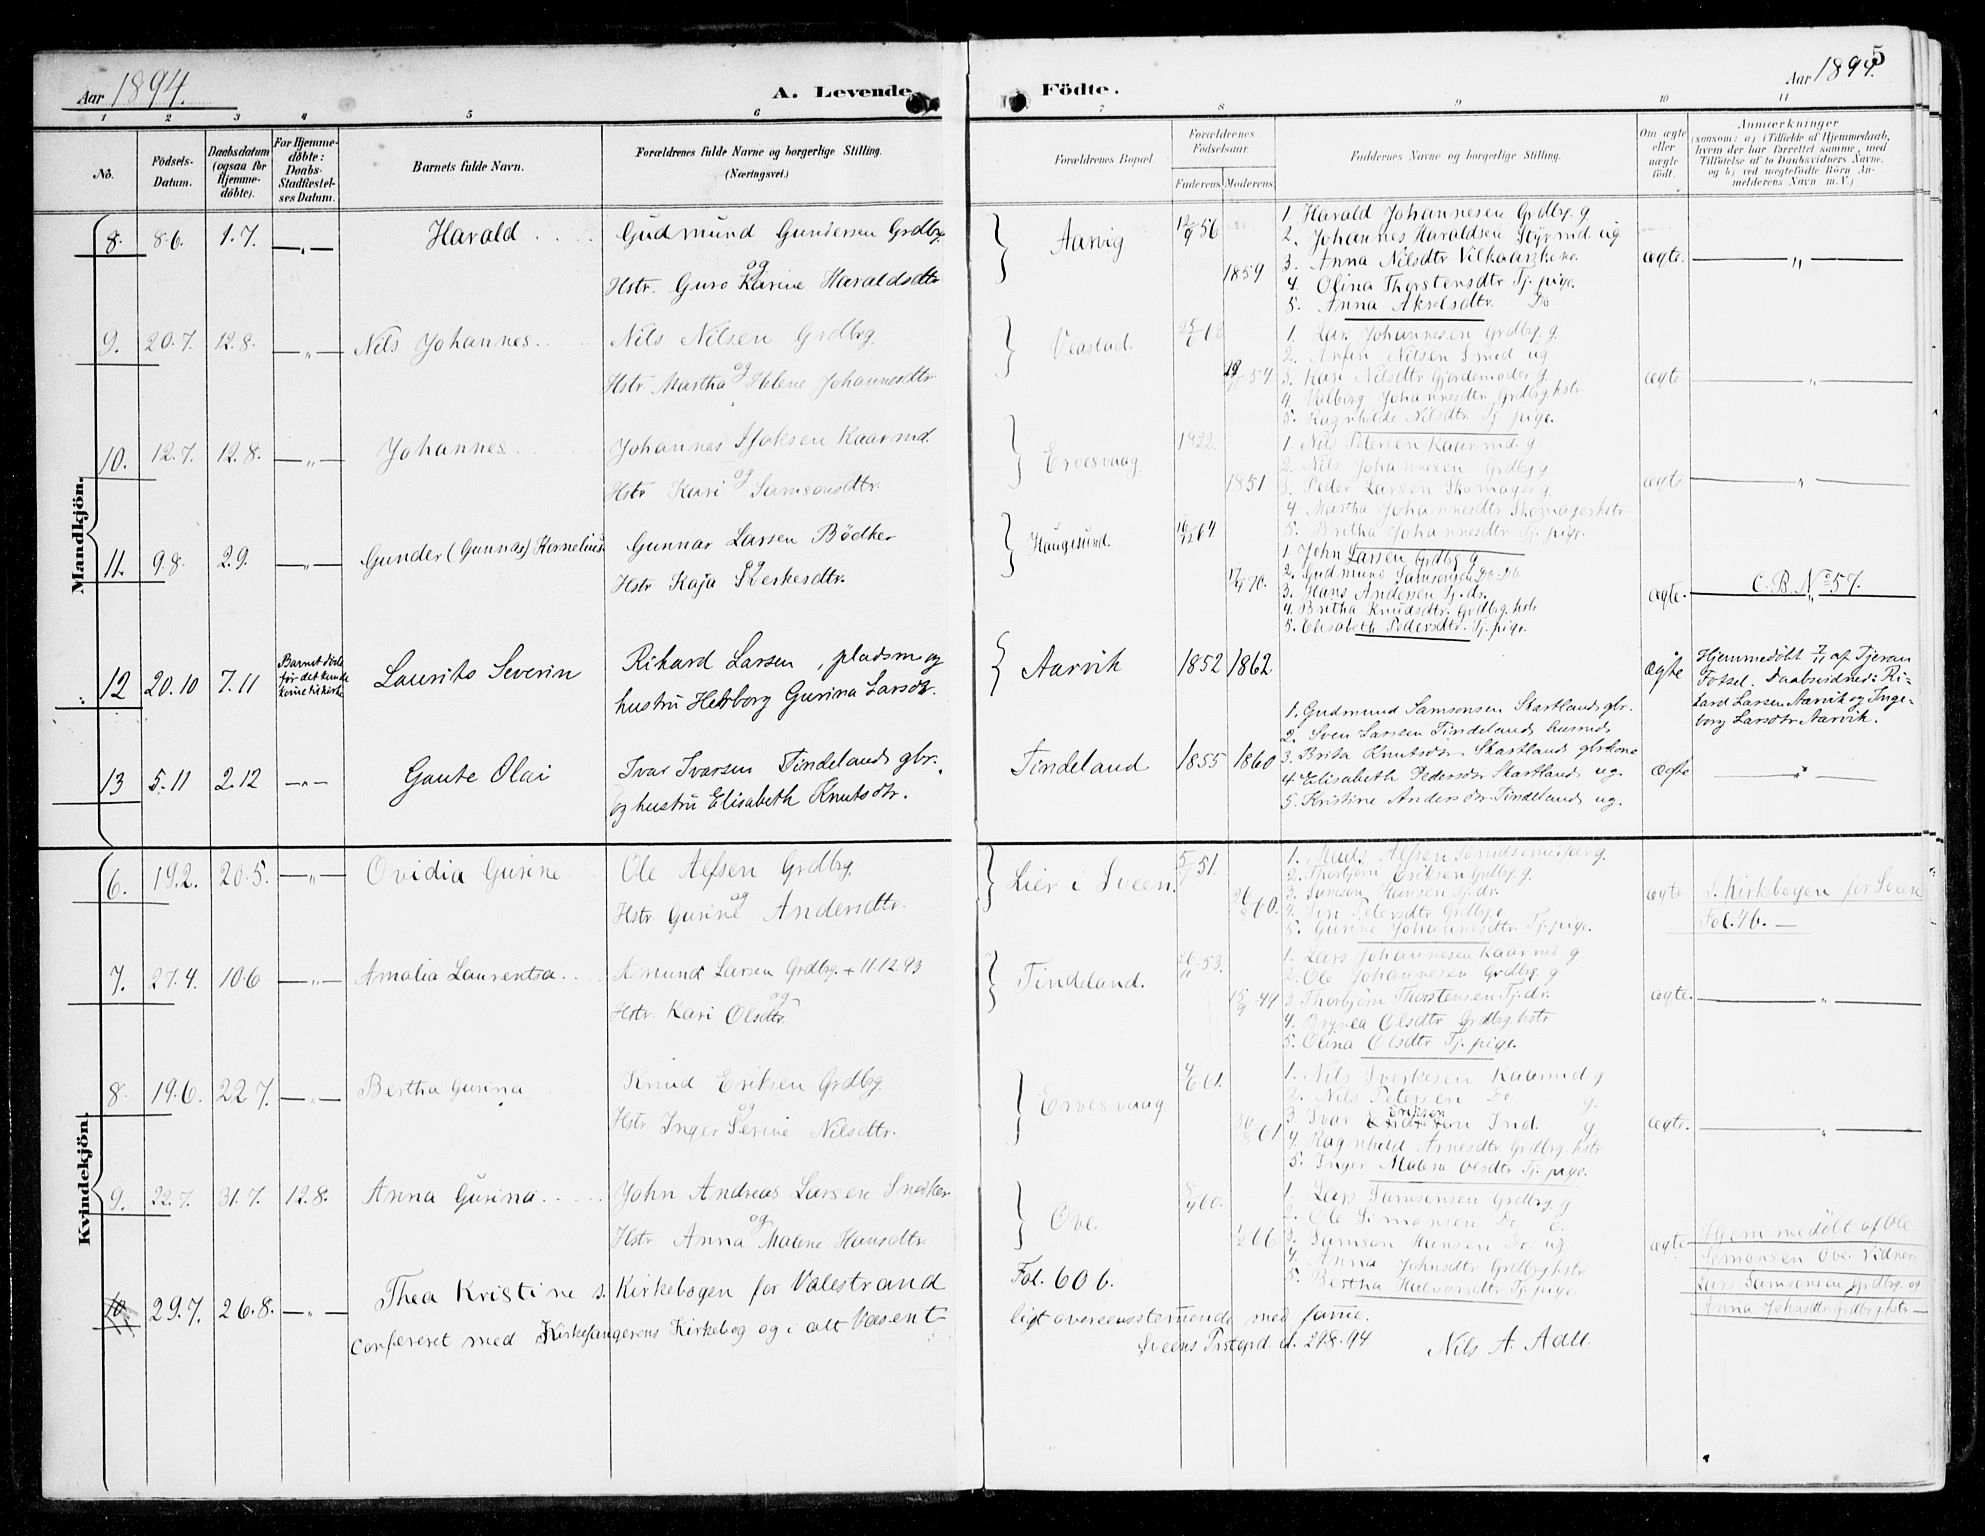 Aar 1894.
A. Levende
Födte.
Aar 1894.
5
1 2 3 4 5 6 7 8 9 10 11
No.
Födsels-Datum.
Daabsdatum (ogsaa för Hjemme-döbte).
For Hjemme-döbte: Daabs-Stadfæstel-ses Datum.
Barnets fulde Navn.
Forældrenes fulde Navne og borgerlige Stilling. (Næringsvei.)
Forældrenes Bopæl.
Forældrenes Födselsaar.
Faderens. Moderens.
Faddernes Navne og borgerlige Stilling.
Om ægte eller uægte födt.
Anmærkninger
(saasom: a) i Tilfælde af Hjemmedaab, hvem der har forrettet samme, med Tilföielse af to Daabsvidners Navne, og b) ved uægtefödte Börn An-melderens Navn m. V.)
Mandkjön.
8. 8.6. 1.7. —„— Harald
Gudmund Gundersen Grdbg.
og
Hstr. Guro Karine Haraldsdtr
Aarvig
12/9 56
1859
1. Harald Johannesen Grdbg. g
2. Johannes Haraldsen Styrmd. ug
3. Anna Nilsdtr Vilkaarskone
4. Olina Thorstensdtr Tj. pige.
5. Anna Akselsdtr. Do.
ægte. „
9. 20.7. 12.8. —„— Nils Johannes
Nils Nilsen Grdbrg.
og
Hstr Martha Helene Johannesdtr
Veastad.
54
1. Lars Johannesen Grdbg. g
2. Arfin Nilsen Smed ug
3. Kari Nilsdtr Gjordemoder g.
4. Valborg Johannesdtr Grdbrg.hstr
5. Ragnhilde Nilsdtr Tj. pige.
ægte „
10. 12.7. 12.8. —„— Johannes
Johannes Kaarmd.
og
Hstr Kari Samsonsdtr.
Ervesvaag
1822.
1851
1. Nils Petersen Kaarmd. g
2. Nils Johannesen Grdbg g
3. Peder Larsen Skomager g.
4. Martha Johannesdtr Skomagerhstr
5. Britha Johannesdtr Tj. pige.
ægte „
11. 9.8. 2.9. —„— Gunder (Gunnar) Kornelius
Gunnar Larsen Bödker
og
Hstr Kaja Sverkesdtr.
Haugesund.
16/12 64
70.
1. John Larsen Grdbg g
2. Gudmund Samsonsen Do. Do.
3. Hans Andersen Tj. dr.
4. Britha Knudsdtr. Grdbrg. hstr
5. Elisabeth Pedersdtr. Tj. pige.
ægte. C. B. No 57.
12 20.10 7.11 Barnet döde för det kunde komme til kirke
Laurits Severin
Rikard Larsen, pladsm. og
hustru Herborg Gurina Larsdtr.
Aarvik 1852 1862
ægte
Hjemmedöbt 7/11 af Tjeran
Fotsel. Daabsvidner: Ri-
kard Larsen Aarvik og Inge-
borg Larsdtr Aarvik.
13 5.11 2.12 —„— Gaute Olai
Ivar Ivarsen Tindeland gbr.
og hustru Elisabeth Knutsdtr.
Tindeland 1855 1860
1. Gudmund Samsonsen Skartland gbr.
2. Sven Larsen Tindeland husmd.
3. Brita Knutsdtr Skartland gbrkone
4. Elisabeth Pedersdtr Skartland ug.
5. Kristine Andersdtr Tindeland ug.
ægte „
Kvindekjön.
6. 19.2. 20.5. —„— Ovidia Gurine
Ole Alfsen Grdbrg.
og
Hstr Gurine Andersdtr.
Lier i Sveen.
51.
60.
1. Mads Alfsen g.
2. Thorbjörn Eriksen Grdbg. g.
3. Samson Hansen Tj. dr.
4. Petersdtr Grdbg.
5. Gurine Johannesdtr Tj. pige.
ægte s. Kirkebogen for Sveen
Fol. 46. —
7. 27.4. 10.6 —„— Amalia Laurentsa
Asmund Larsen Grdbg. + 11.12.93
og
Hstr. Kari Olsdtr
Tindeland.
53.
1. Lars Johannesen Kaarmd g
2. Ole Johannesen Grdbg g
3. Thorbjörn Thorstensen Tj. dr.
4. Brynla Olsdtr Grdbrg. hstr
5. Olina Olsdtr Tj. pige.
ægte. „
8. 19.6. 22.7. —„— Bertha Gurina
Knud Eriksen Grdbg
og
Hstr. Inger Serine Nilsdtr.
Ervesvaag
61.
61
1. Nils Sverkesen Kaarmd g
2. Nils Petersen Do g.
3. Ivar Eriksen Ind. g
4. Ragnhild Arnesdtr Grdbrg hstr
5. Inger Malene Olsdtr Tj. pige.
ægte. „
9. 22.7. 31.7. 12.8. Anna Gurina
John Andreas Larsen Snedker
og
Hstr Anna Malene Hansdtr.
Ove.
60.
66
1. Lars Samsonsen Grdbrg g
2. Ole Simonsen Do. E.
3. Samson Hansen Do ug
4. Anna Johnsdtr Grdbrghstr
5. Bertha Halvorsdtr Tj. pige.
ægte Hjemmedöbt af Ole
Simonsen Ove. Vidner
Lars Samsonsen Grdbrg. og
Anna Johnsdtr Grdbrg hstr —
10 29.7. 26.8. —„— Thea Kristine s. Kirkebogen for Valestrand Fol. 60 b.
Confereret med Kirkesangerens Kirkebog og i alt Væsent-
ligt overeensstemmende med samme.
Sveens Prstgrd d. 29.8.94 Nils A. Aall.